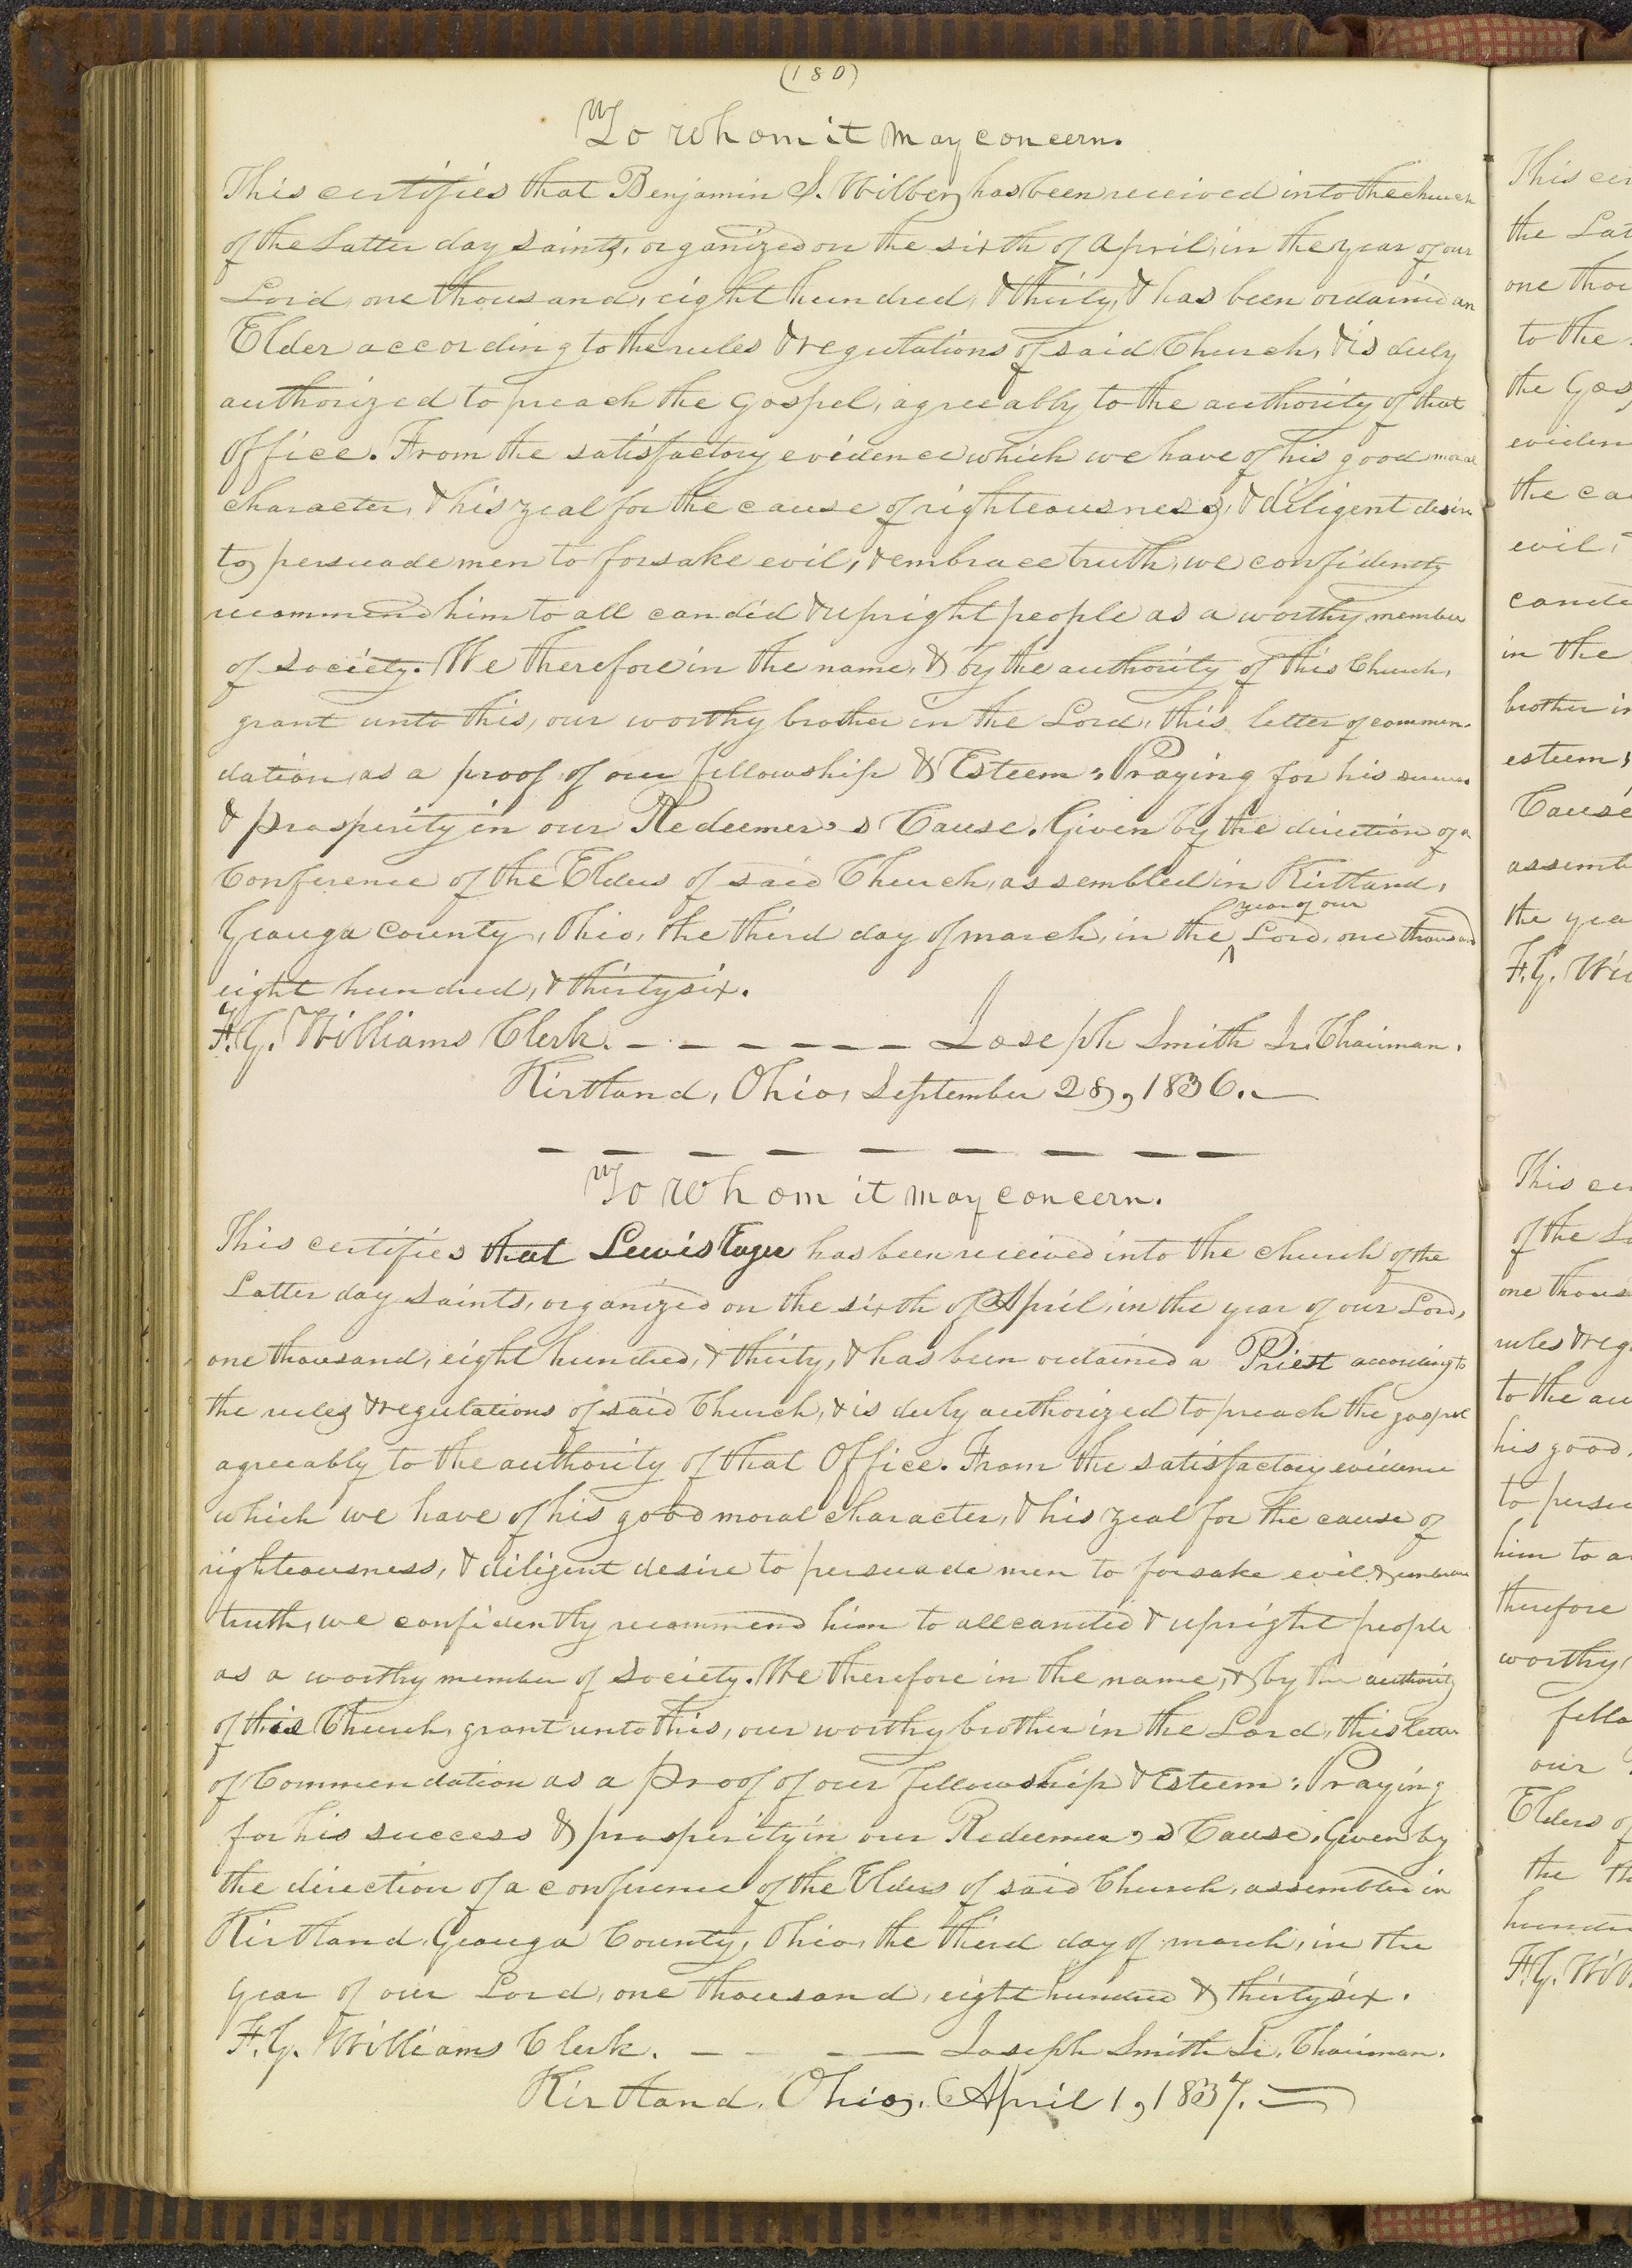 (180)
To whom it may concern.
This certifies that Benjamin S. Wilber has been received into the church
of the Latter day saints, organized on the sixth of April, in the year of our
Lord, one thousand, eight hundred, & thirty, & has been ordained an
Elder according to the rules & regulations of said Church, & is duly
authorized to preach the gospel, agreeably to the authority of that
office. From the satisfactory evidence which we have of his good moral
character, & his zeal for the cause of righteousness, & diligent desire
to persuade men to forsake evil, & embrace truth, we confidently
recommend him to all candid & upright people as a worthy member
of society. We therefore in the name, & by the authority of this Church,
grant unto this, our worthy brother in the Lord, this letter of commen-
dation, as a proof of our fellowship & Esteem: Praying for his success
& prosperity in our Redeemer's Cause. Given by the direction of a
Conference of the Elders of said Church, assembled in Kirtland,
year of our
Geauga County, Ohio, the third day of march, in the ^ Lord, one thousand
eight hundred, & thirty six.
F. G. Williams Clerk. - - - - - - - Joseph Smith Jr. Chairman.
Kirtland, Ohio, September 28, 1836.
To whom it may concern.
This certifies that Lewis has been received into the church of the
Latter day saints, organized on the sixth of April, in the year of our Lord,
one thousand, eight hundred, & thirty, & has been ordained a Priest according to
the rules & regulations of said Church, & is duly authorized to preach the gospel
agreeably to the authority of that Office. From the satisfactory evidence
which we have of his good moral character, & his zeal for the cause of
righteousness, & diligent desire to persuade men to forsake evil & embrace
truth, we confidently recommend him to all candid & upright people
as a worthy member of society. We therefore in the name, & by the authority
of this Church, grant unto this, our worthy brother in the Lord, this letter
of Commendation as a Proof of our fellowship & Esteem: Praying
for his success & prosperity in our Redeemer's Cause. Given by
the direction of a conference of the Elders of said Church, assembled in
Kirtland, Geauga County, Ohio, the third day of march, in the
year of our Lord, one thousand, eight hundred & thirty six.
F. G. Williams Clerk. - - - - Joseph Smith Jr. Chairman.
Kirtland, Ohio, April 1, 1837.
This cer
the Lat
one thou
to the
the Gos
eviden
the ca
evil,
candi
in the
brother in
esteem;
Cause
assemb
the yea
F. G. Wil
This cer
of the La
one thous
rules & reg
to the au
his good
to persu
him to a
therefore
worthy
fello
our
Elders of
the th
hundr
F. G. Wil